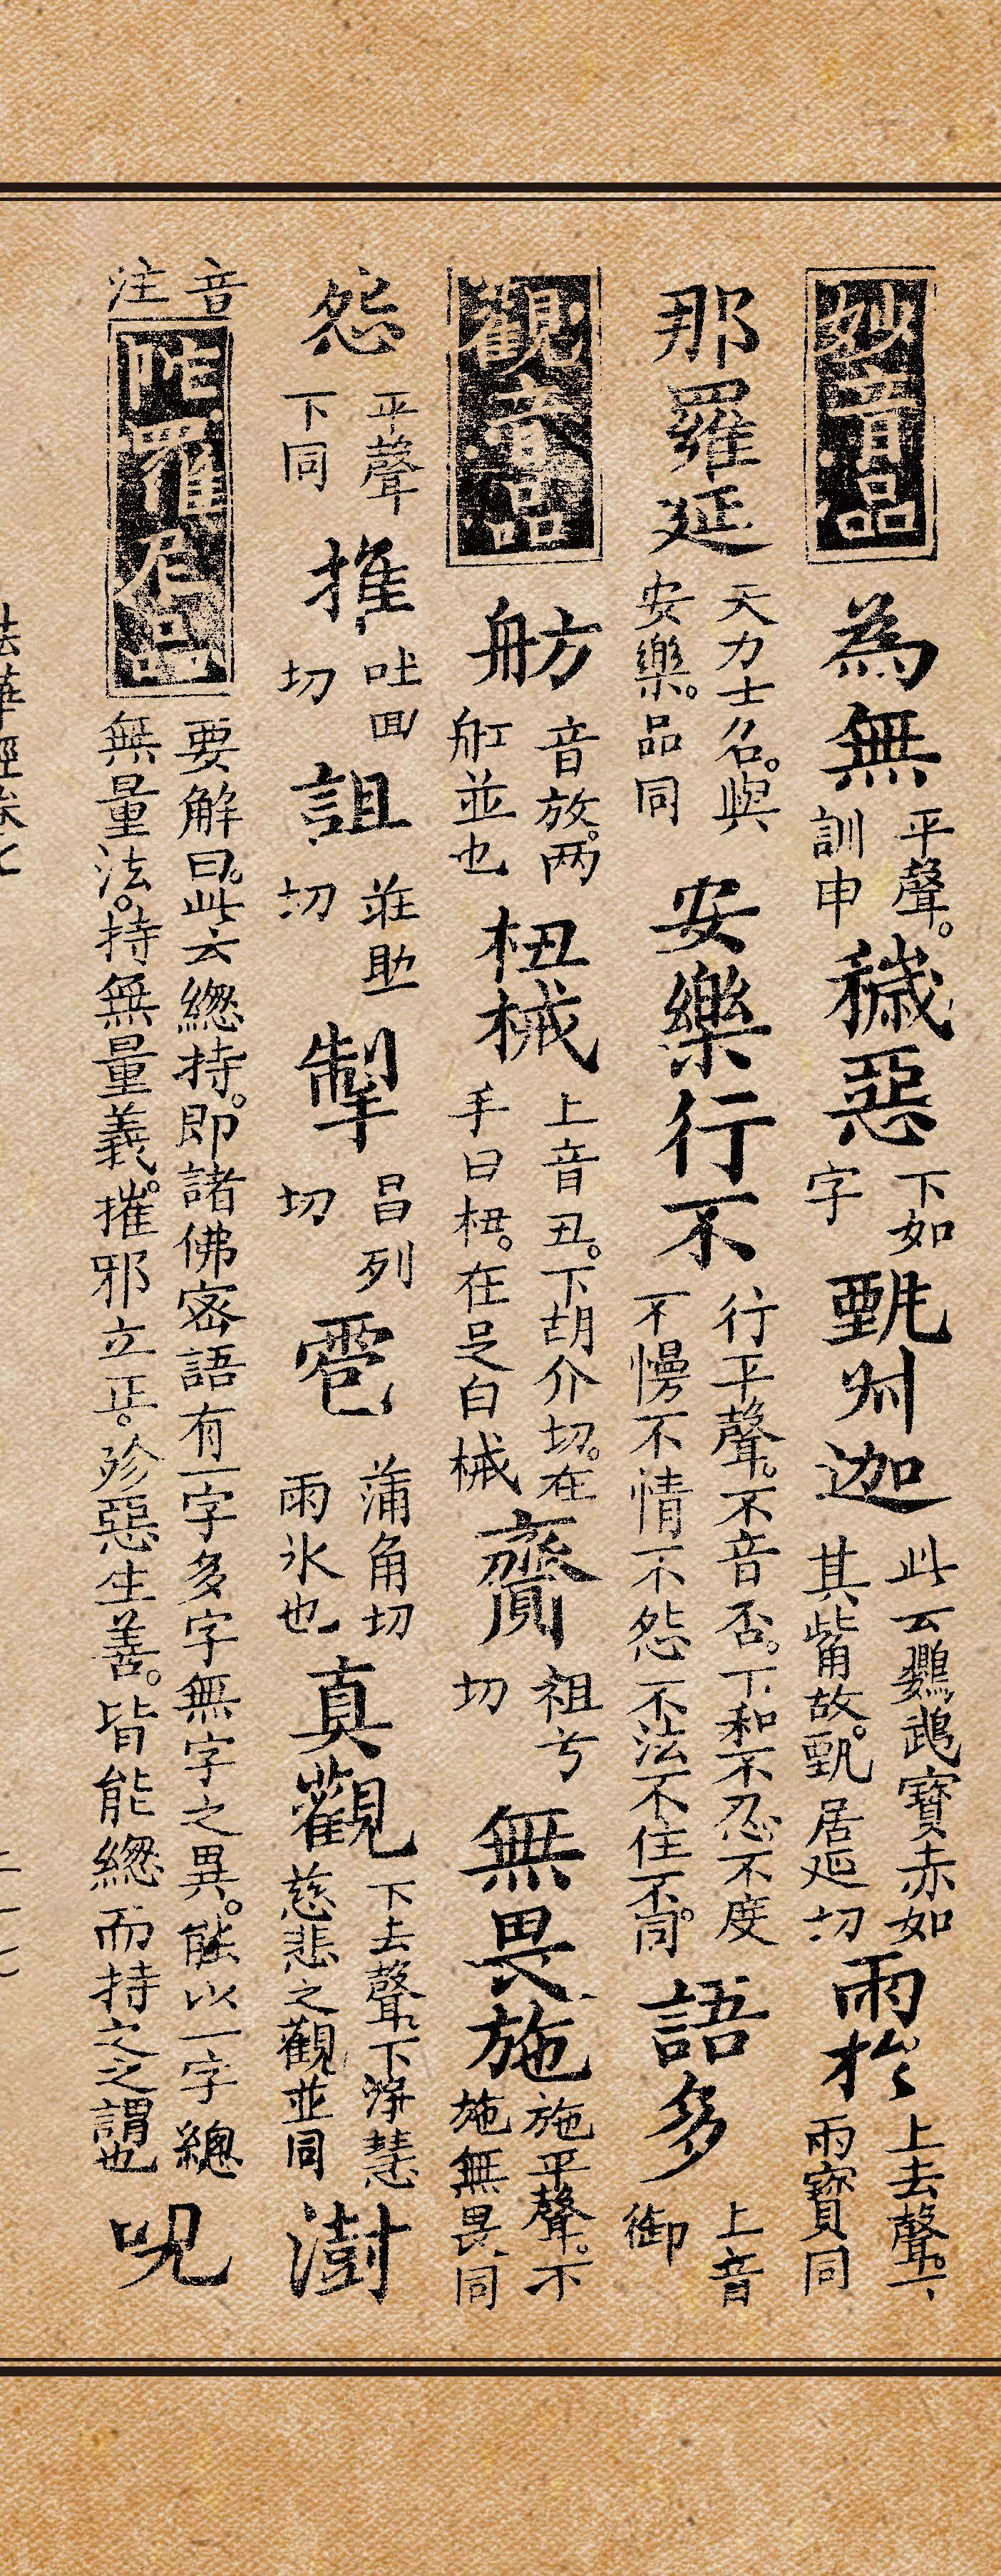 妙音品 為無 平聲。訓申 穢惡 下如字 甄叔迦 此云鸚鵡寶赤如其觜故。甄居延切 雨於 上去聲。下雨寶同
那羅延 天力士名。與安樂。品同 安樂行不 行平聲。不音否。下和不忍不度不慢不情不怨不法不住不同。 語多 上音御
觀音品 舫 音放。两舡並也 杻械 上音丑。下胡介切。在手曰杻。在足曰械 齎 祖兮切 無畏施 施平聲。下施無畏同
怨 平聲下同 推 吐回切 詛 莊助切 掣 昌列切 雹 蒲角切雨氷也 真觀 下去聲。下淨慧慈悲之觀並同 澍
音注 陀羅尼品 要解曰。此云緫持。即諸佛密語有一字多字無字之異。能以一字緫無量法。持無量義。摧邪立正。殄惡生善。皆能緫而持之之謂也 呪